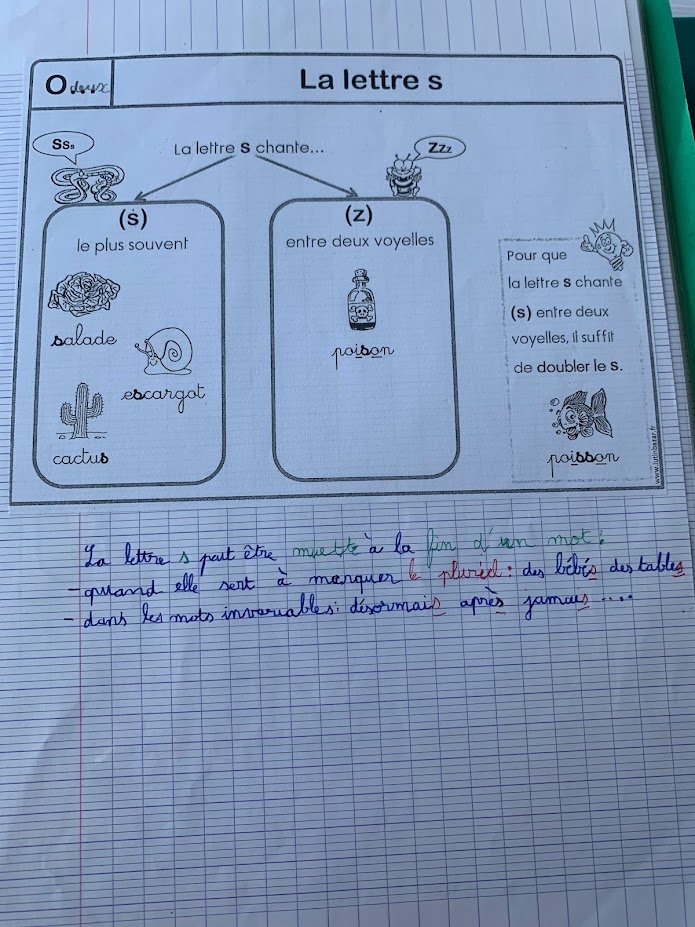 O deux
La lettre s
Sss
La lettre s chante...
Zzz
(s)
le plus souvent
salade
escargot
cactus
(z)
entre deux voyelles
poison
Pour que
la lettre s chante
(s) entre deux
voyelles, il suffit
de doubler le s.
poisson
www.lutinbazar.fr
La lettre s peut être muette à la fin d'un mot :
- quand elle sert à marquer le pluriel : des bébés des tables
- dans les mots invariables : désormais après jamais ....